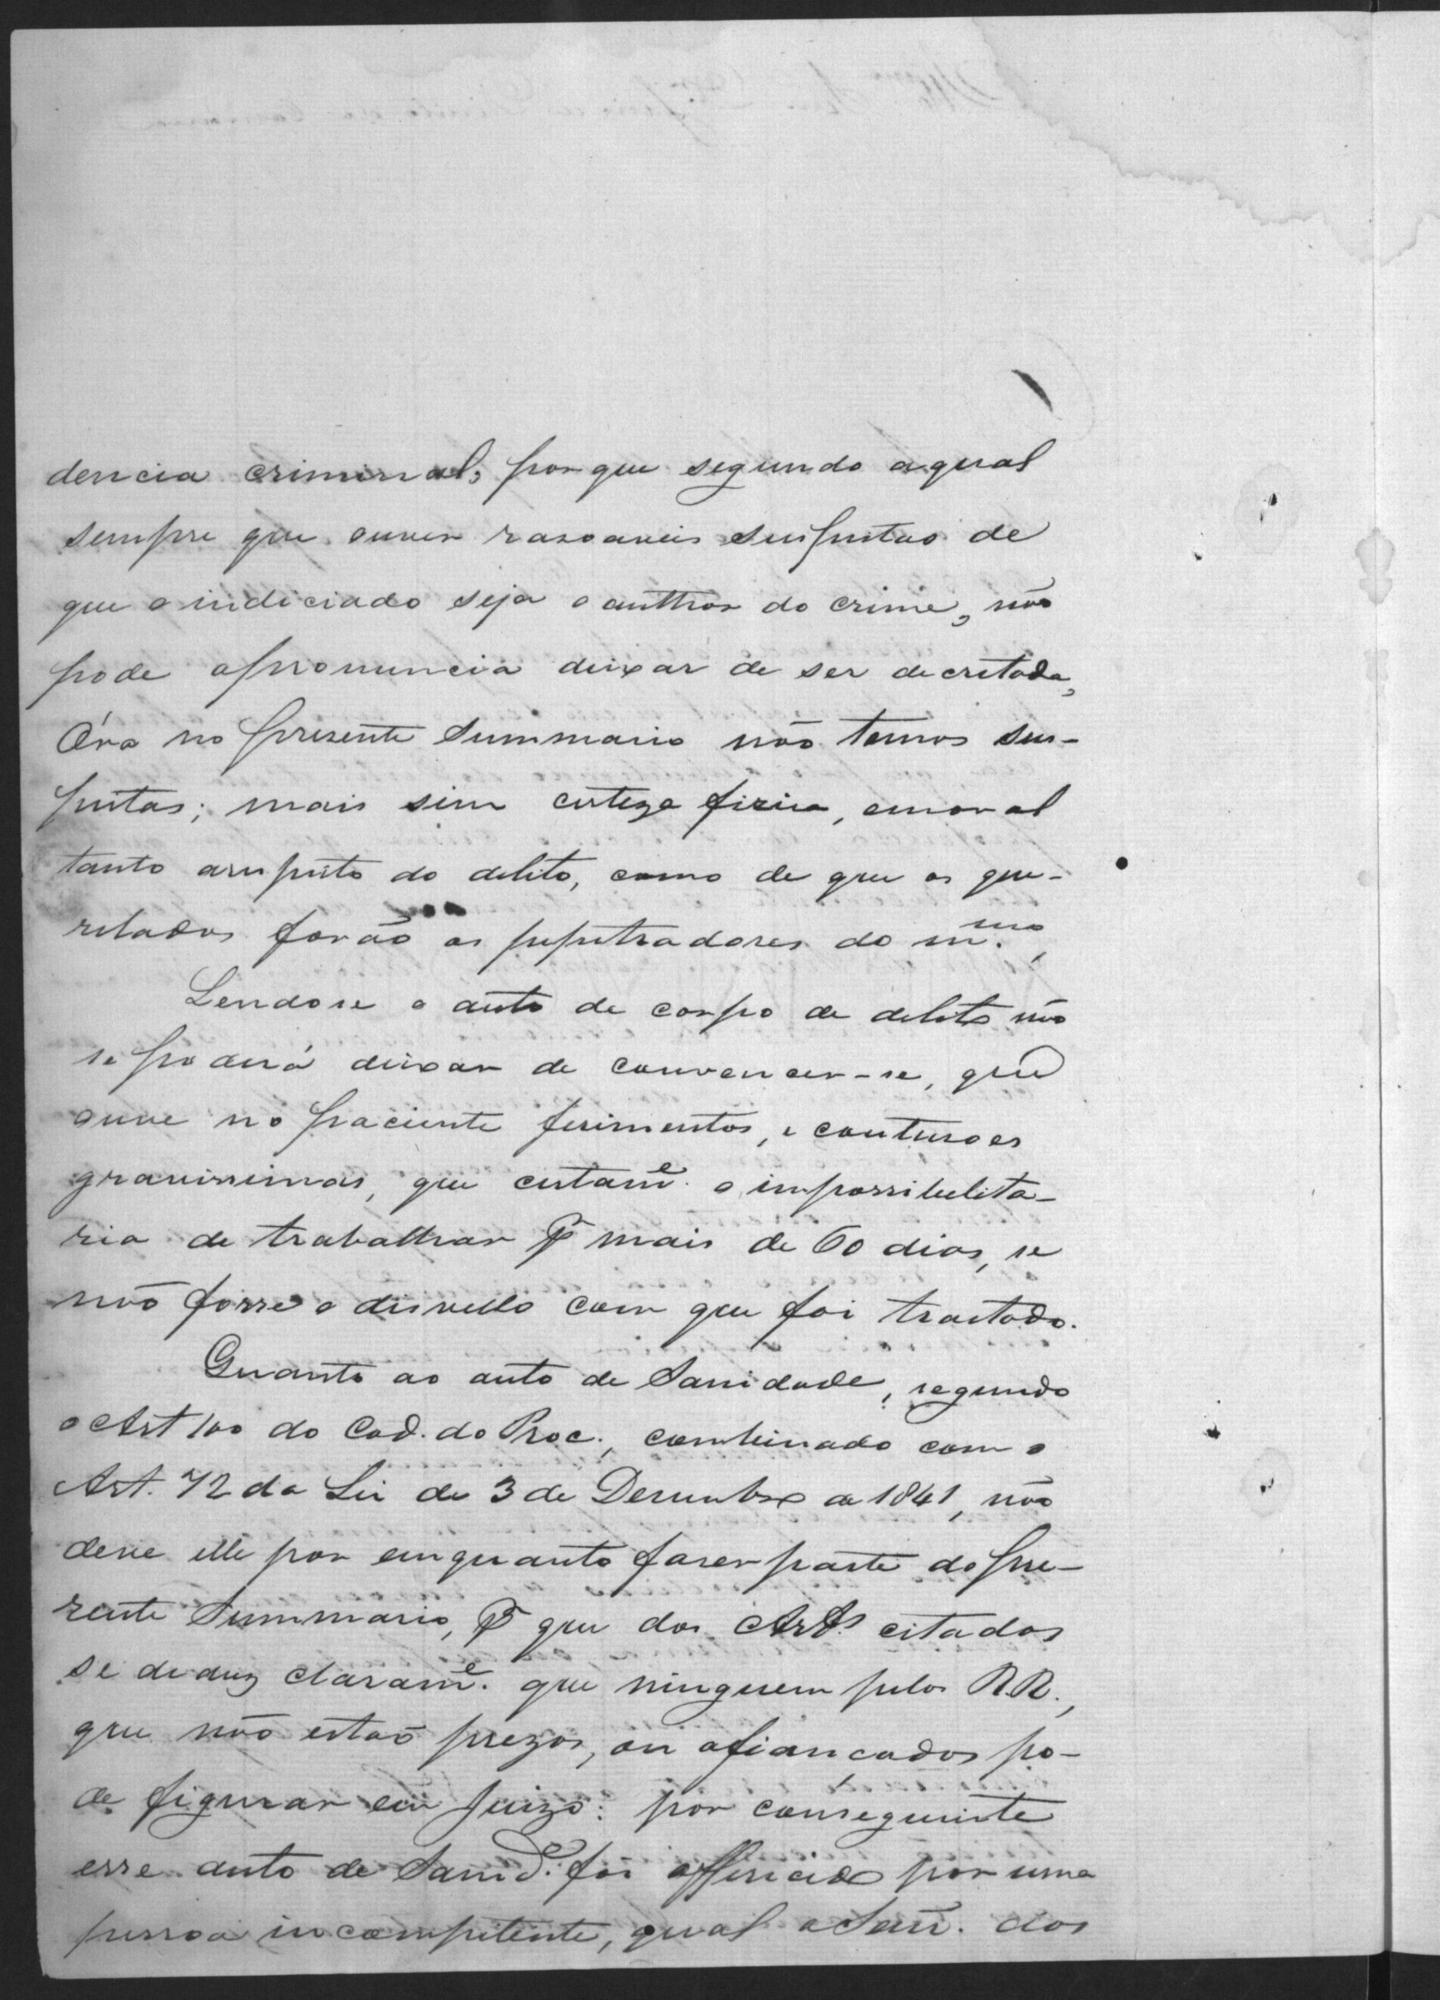 dencia criminal, por que segundo a qual
sempre que ouver rasoaveis suspeitas de
que o indiciado seja o auttor do crime, não
pode a pronuncia deixar de ser decretada,
Óra no presente Summario não temos sus-
peitas; mais sim certeza fizica, e moral
tanto a respeito do delito, como de que os que-
relados forão os perpetradores do m.mo,
Lendose o auto de corpo de delito não
se poderá deixar de convencer-se, que
ouve no paciente ferimentos, e contusoes
gravissimas, que certam.e o impossibelita-
ria de trabalhar p.r mais de 60 dias, se
não fosse o disvello com que foi tractado.
Quanto ao auto de Sanidade, segundo
o Art 100 do Cod. do Proc., combinado com o
Art. 72 da Lei de 3 de Desembro de 1841, não
deve elle por emquanto faser parte do pre-
zente Summario, p.r que dos Art.s citados
se deduz claram.e que ninguem pelos R.R.,
que não estão prezos, ou afiançados po-
de figurar em Juizo: por conseguinte
esse auto de Sanid.e foi offerecido por uma
pessoa incompetente, qual a dos